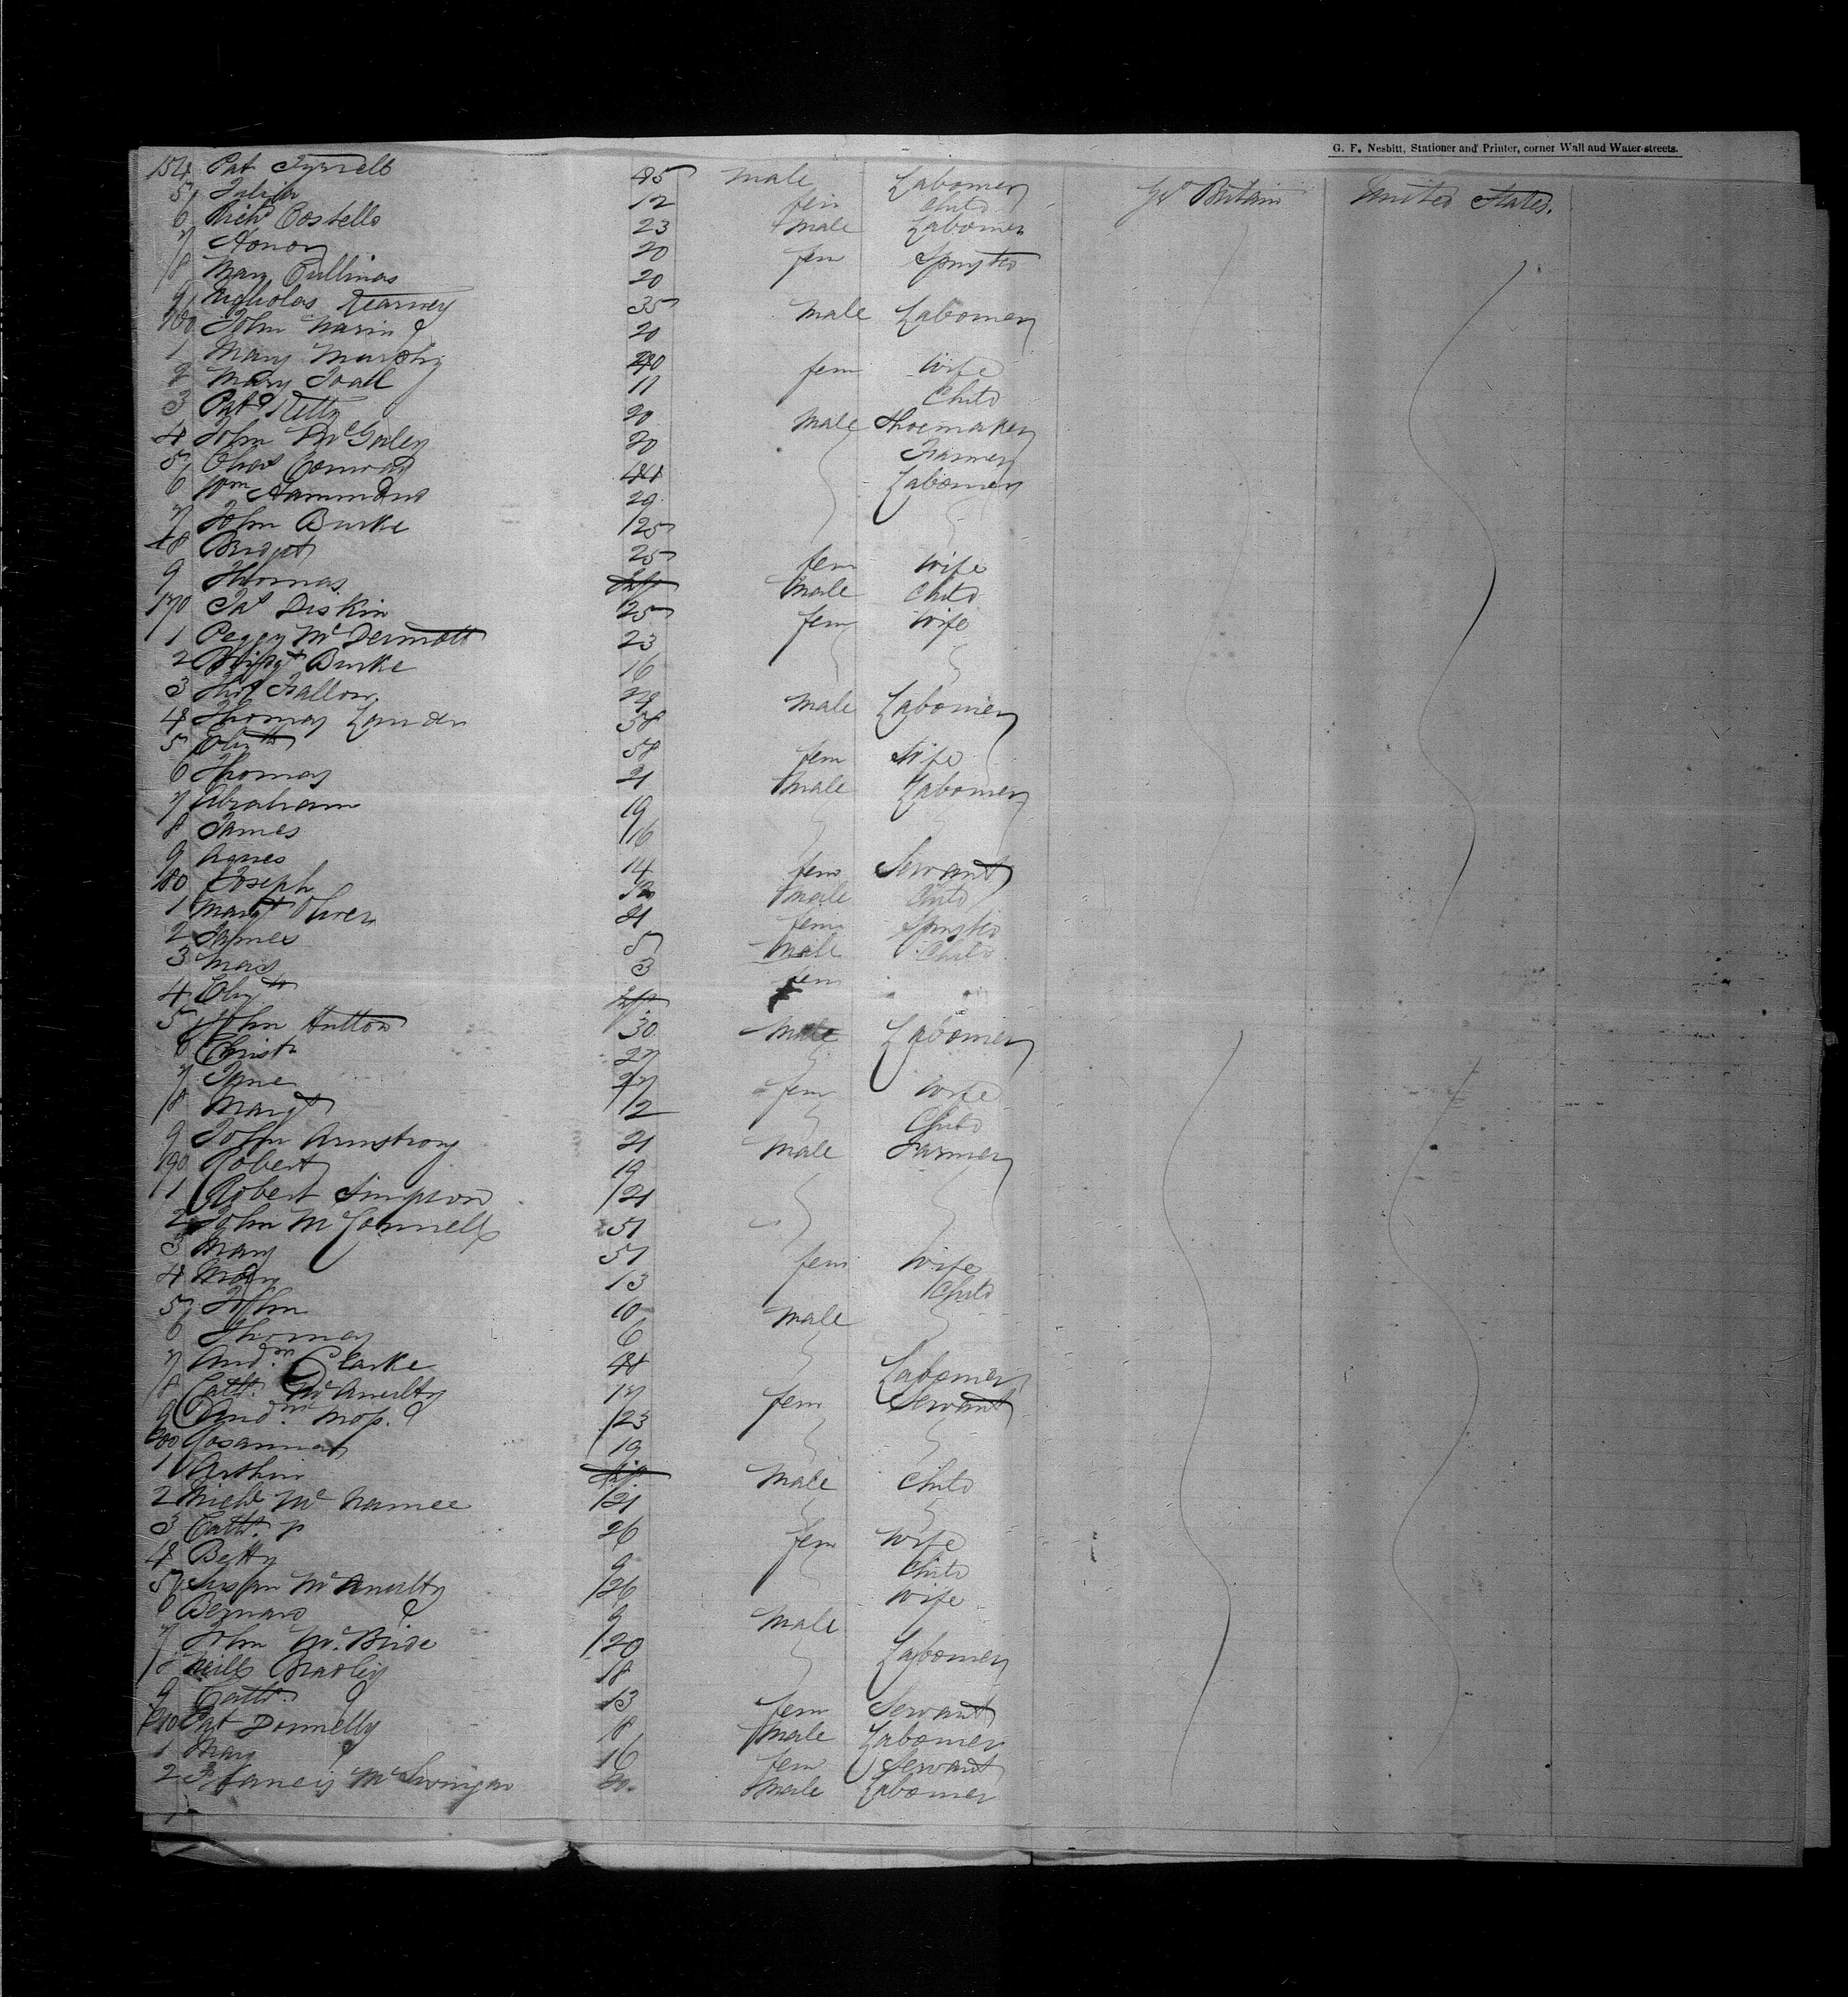 G. F. Nesbitt, Stationer and Printer, corner Wall and Water streets.
154 Pat Tyrrell 45 male Labourer Gt Britain United States.
5 12 fem Child
6 Richd Costello 23 male Labourer
7 Honor 20 fem Spinster
8 Mary Cullinas 20
9 Nicholas Kearney 35 male Labourer
160 John 20
1 Mary Murphy 40 fem Wife
2 Mary 11 Child
3 Pat Kelly 20 male Shoemaker
4 John McGinley 20 Farmer
5 Chas Conway 44 Labourer
6 Wm Hammond 29
7 John Burke 25
8 Bridget 25 fem Wife
9 Thomas Inft male Child
170 Jas Diskin 25 fem Wife
1 Peggy McDermott 23
2 Bridgt Burke 16
3 Thos Fallon 24 male Labourer
4 Thomas 58
5 Elizth 58 fem Wife
6 Thomas 21 male Labourer
7 Abraham 19
8 James 16
9 Agnes 14 fem Servant
180 Joseph male Child
1 Margt Oliver 21 fem Spinster
2 James 5 male Child
3 Mary 3 fem
4 Elizth Inft
5 John Hutton 30 male Labourer
6 Christr 27
7 Jane 27 fem Wife
8 Margt 2 Child
9 John Armstrong 21 male Farmer
190 Robert 19
1 Robert Simpson 21
2 John McConnell 51
3 Mary 51 fem Wife
4 Mary 13 Child
5 John 10 male
6 Thomas 6
7 Andw Clarke Labourer
8 Cath. McAnulty 17 fem Servant
9 23
200 Rosannah 19
1 Arthur Inft male Child
2 Michl McNamee 21
3 Cath. 26 fem Wife
4 Betty 9 Child
5 Susan McAnulty 26 Wife
6 Bernard 9 male
7 John McBride 20 Labourer
8 Neill Bradley 18
9 Cath. 13 fem Servant
210 Pat Donnelly 18 male Labourer
1 Mary 16 fem Servant
2 Francis McSwigan 20 male Labourer